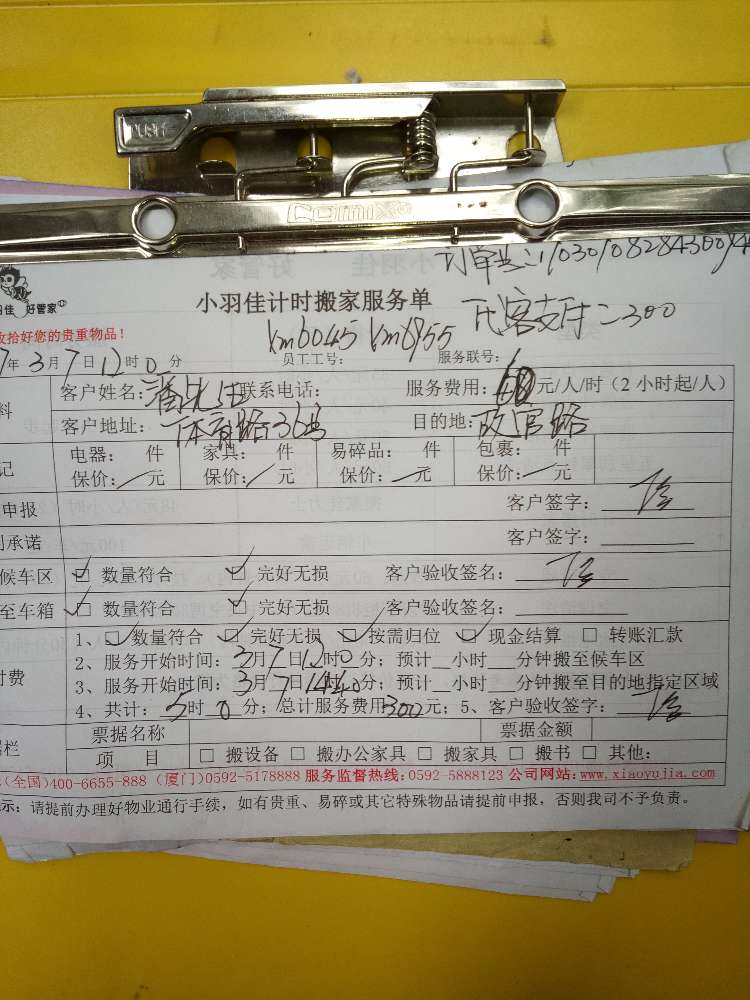 COMIX
订单号:1703010828430044
小羽佳 好管家
小羽佳计时搬家服务单 代客支付=300
收拾好您的贵重物品!
km6045 km6955
7年3月7日12时0分 员工工号: 服务联号:
客户姓名:潘先生 联系电话: 服务费用: 元/人/时(2小时起/人)
客户地址:体育路36号 目的地:故宫路
电器: 件 家具: 件 易碎品: 件 包裹: 件
保价: 元 保价: 元 保价: 元 保价: 元
申报 客户签字:
承诺 客户签字:
候车区 ☑ 数量符合 ☑ 完好无损 客户验收签名:
至车箱 ☑ 数量符合 ☑ 完好无损 客户验收签名:
1、☑ 数量符合 ☑ 完好无损 ☑ 按需归位 ☑ 现金结算 □ 转账汇款
2、服务开始时间:3月7日12时0分;预计 小时 分钟搬至候车区
付费 3、服务开始时间:3月7日 分;预计 小时 分钟搬至目的地指定区域
4、共计:5时0分;总计服务费用300元;5、客户验收签字:
票据名称 票据金额
栏 项 目 □ 搬设备 □ 搬办公家具 □ 搬家具 □ 搬书 □ 其他:
(全国)400-6655-888 (厦门)0592-5178888 服务监督热线:0592-5888123 公司网站:www.xiaoyujia.com
示:请提前办理好物业通行手续,如有贵重、易碎或其它特殊物品请提前申报,否则我司不予负责。